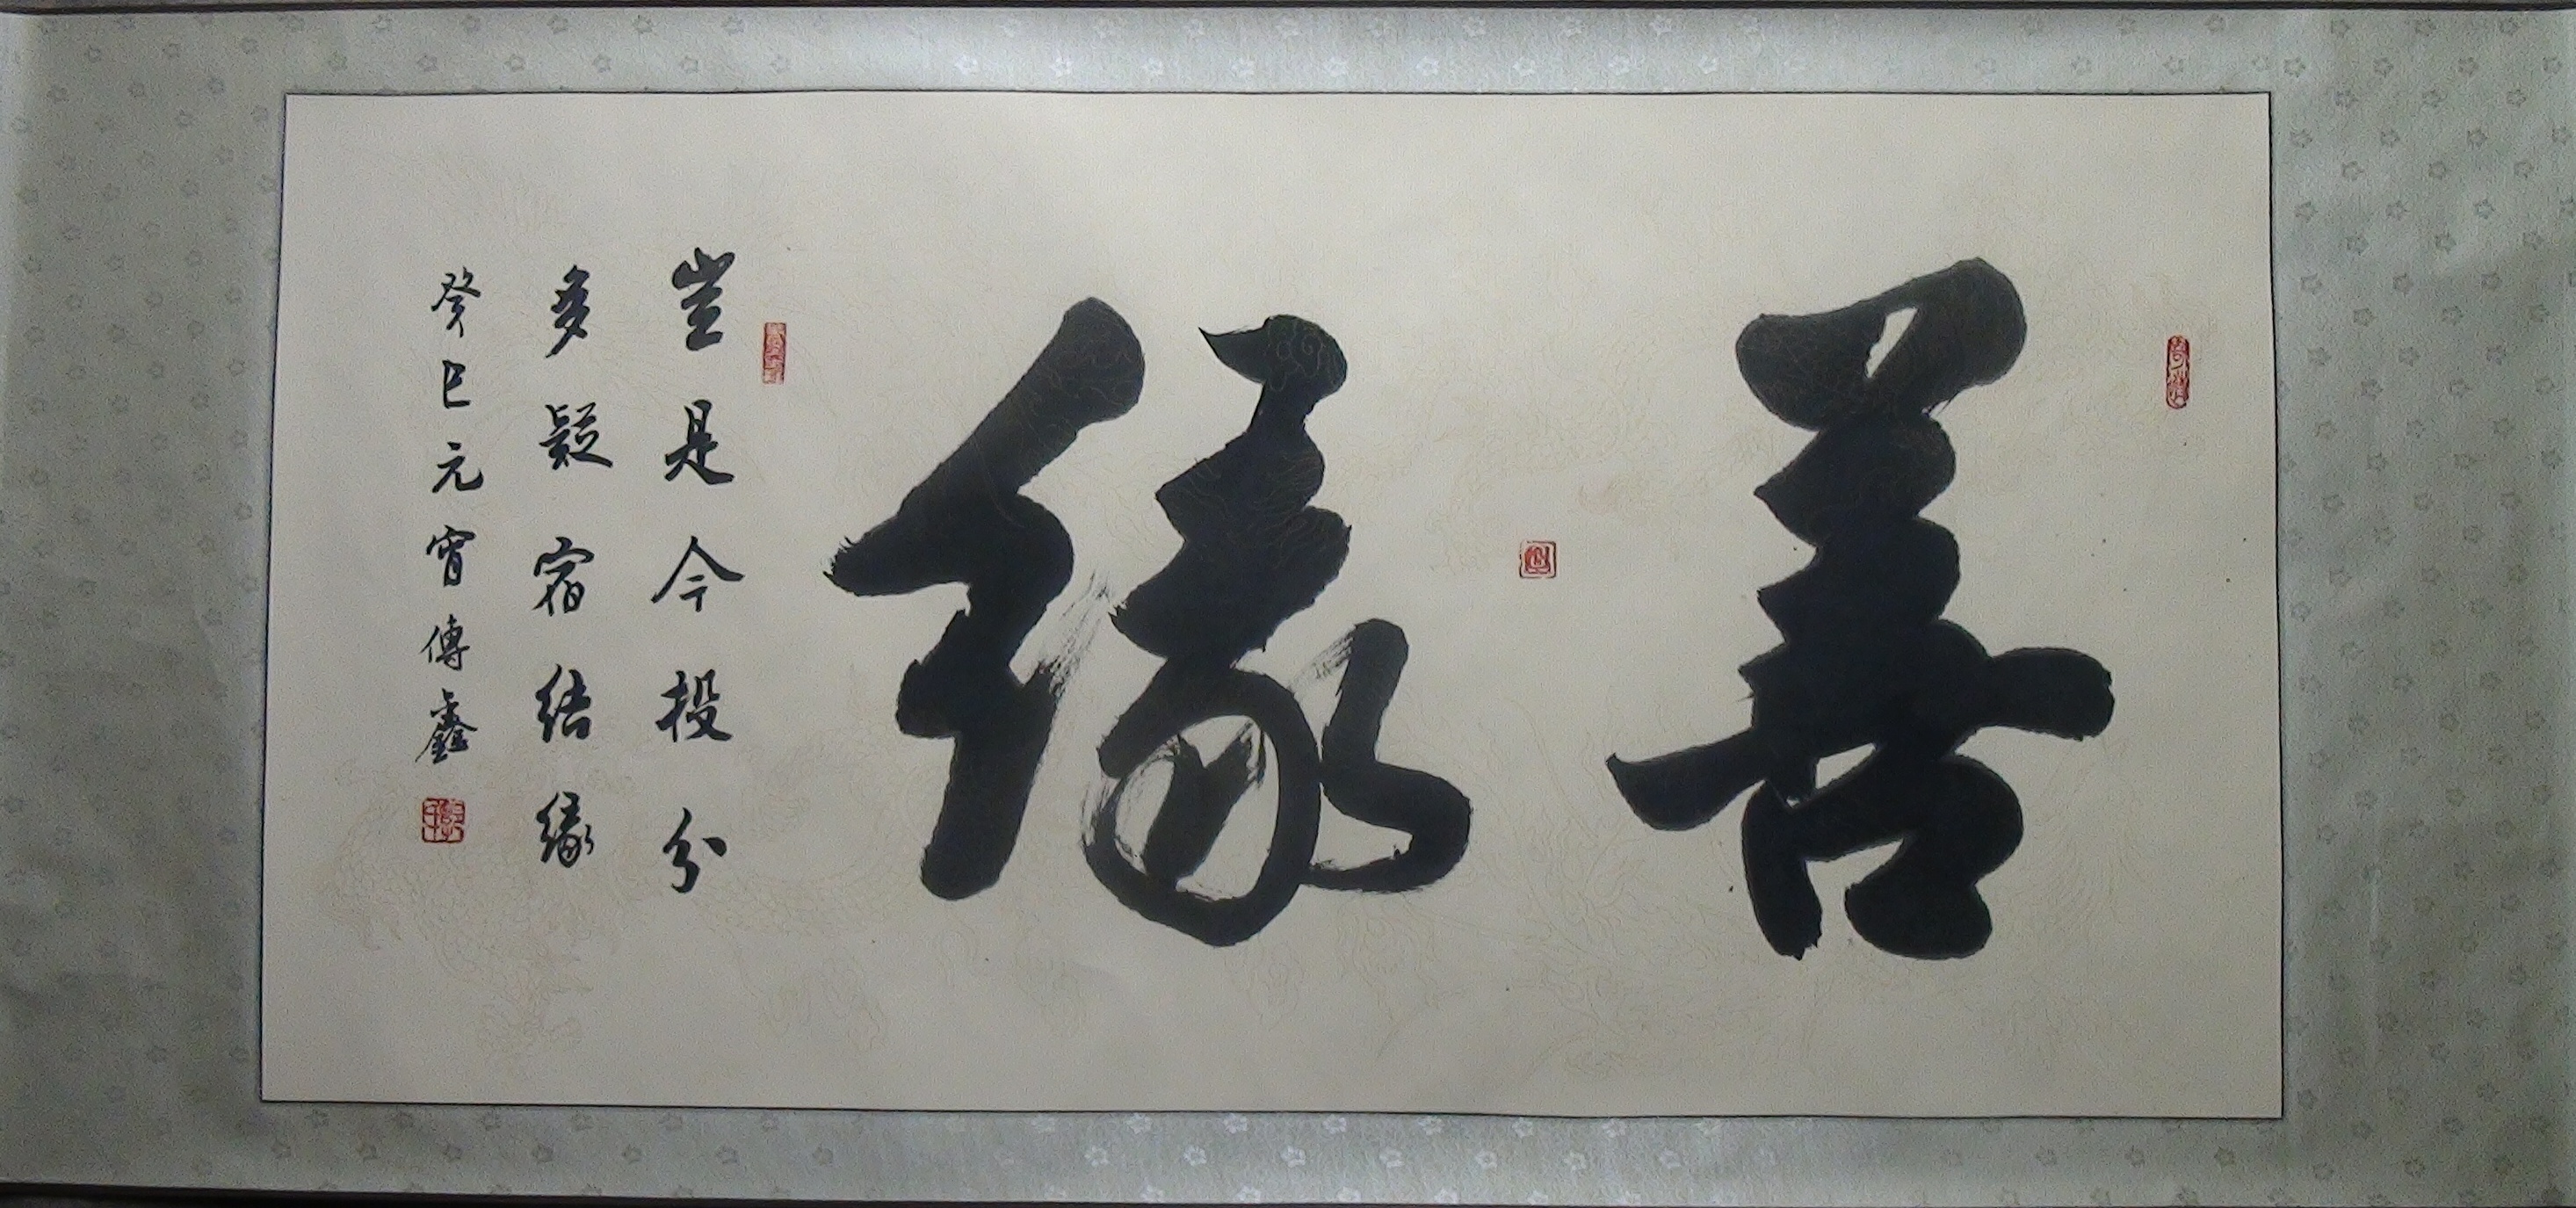 善緣
豈是今投分
多疑宿結緣
癸巳元宵傳鑫